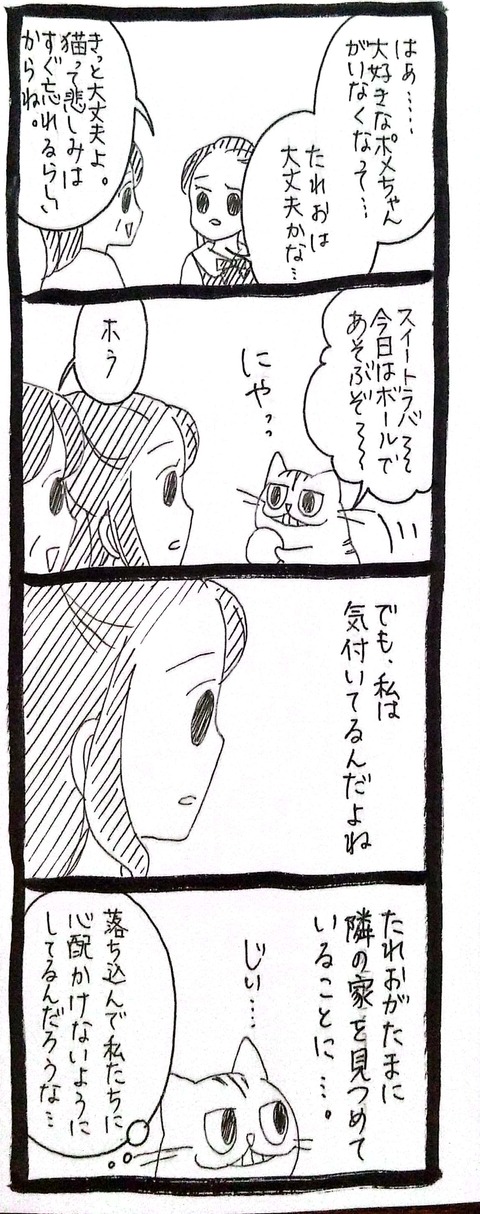 はぁ……
大好きなポメちゃん
がいなくなって…
たれおは
大丈夫かな…
きっと大丈夫よ。
猫って悲しみは
すぐ忘れるらしい
からね。
スイートラバ〜〜
今日はボールで
あそぶぞ〜〜
にやっっ
ホラ
でも、私は
気付いてるんだよね
たれおがたまに
隣の家を見つめて
いることに…。
じぃ…
落ち込んで私たちに
心配かけないように
してるんだろうな…